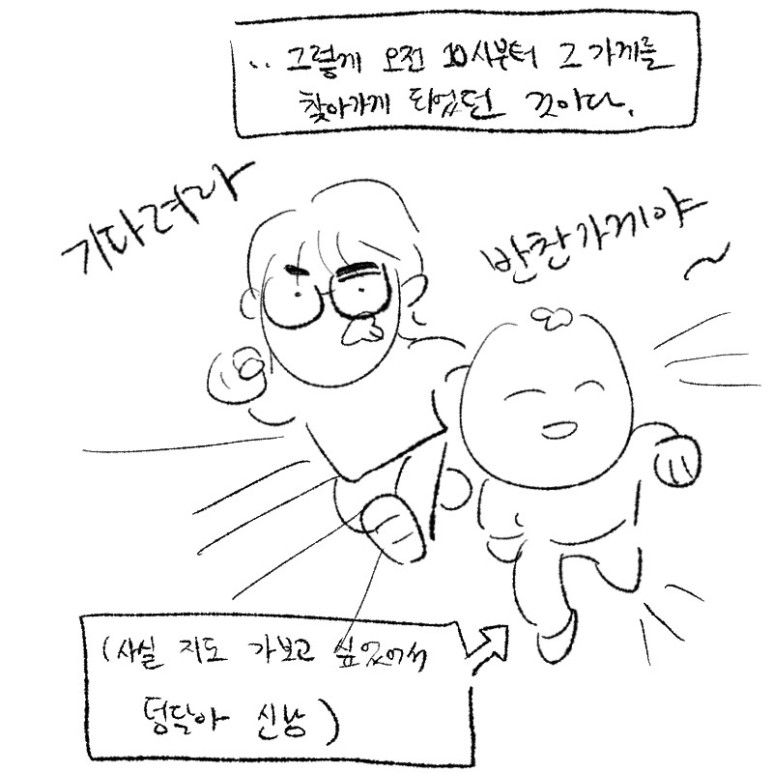 .. 그렇게 오전 10시부터 그 가게를
찾아가게 되었던 것이다.
기다려라
반찬가게야~
(사실 지도 가보고 싶었어서
덩달아 신남)